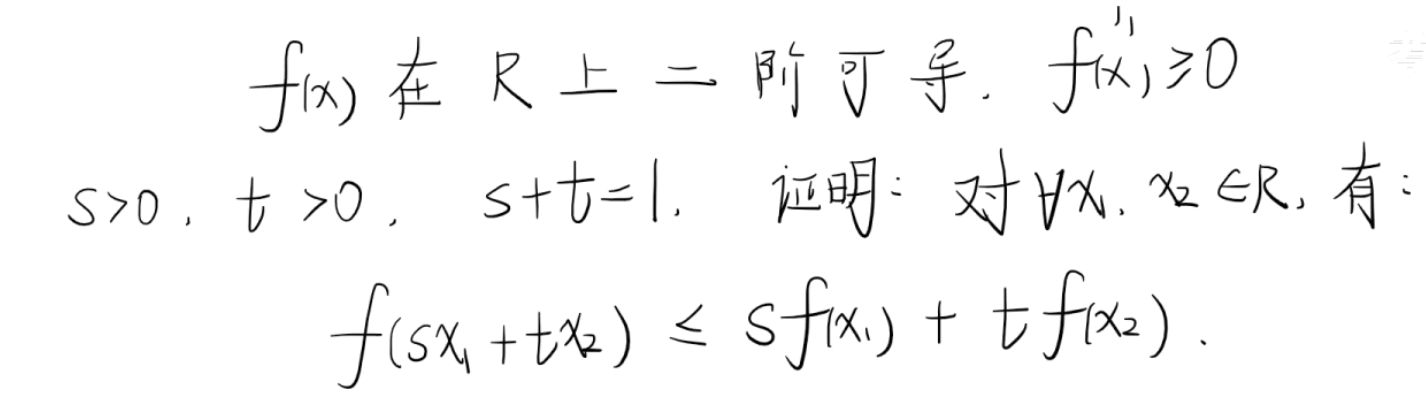 f(x) 在 R 上二阶可导. f''(x) ≥ 0
s>0, t>0, s+t=1. 证明: 对∀x₁, x₂∈R, 有:
f(sx₁+tx₂) ≤ sf(x₁) + tf(x₂).